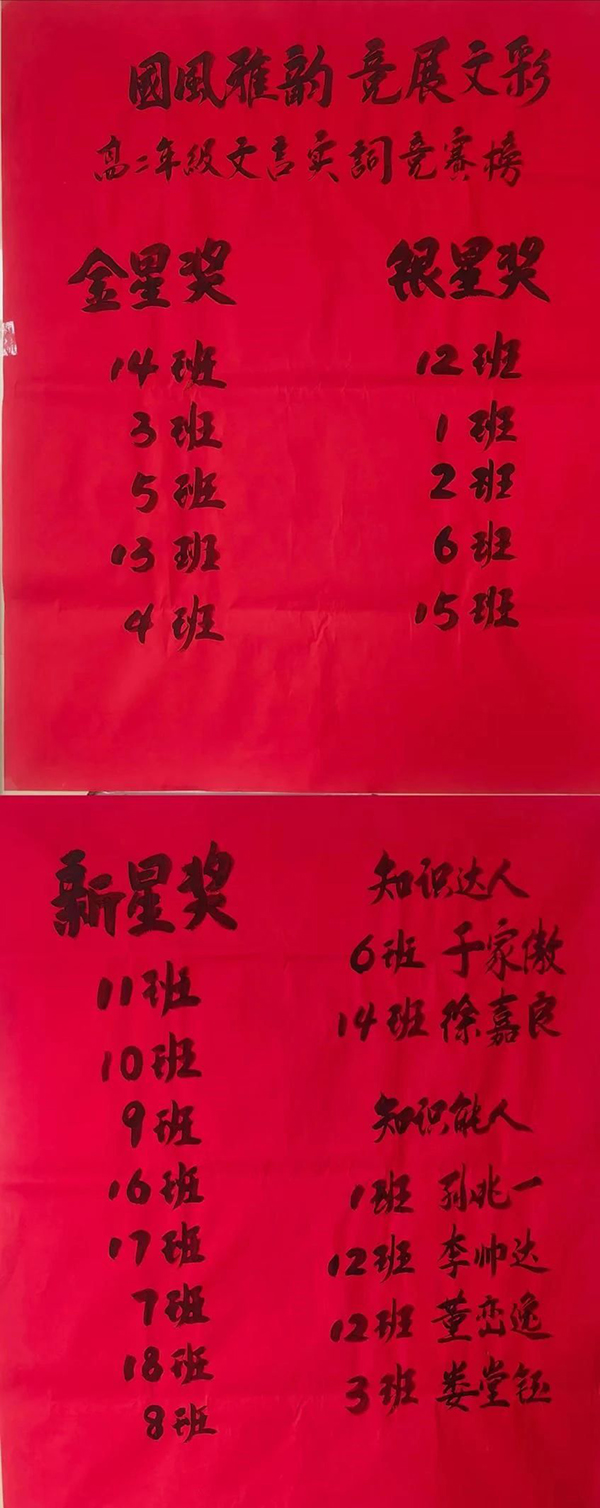 國風雅韵 竞展文彩
高二年级文言实詞竞赛榜
金星奖
14班
3班
5班
13班
4班
银星奖
12班
1班
2班
6班
15班
新星奖
11班
10班
9班
16班
17班
7班
18班
8班
知识达人
6班 于家傲
14班 徐嘉良
知识能人
1班 孙兆一
12班 李帅达
12班 董峦逸
3班 娄堂钰